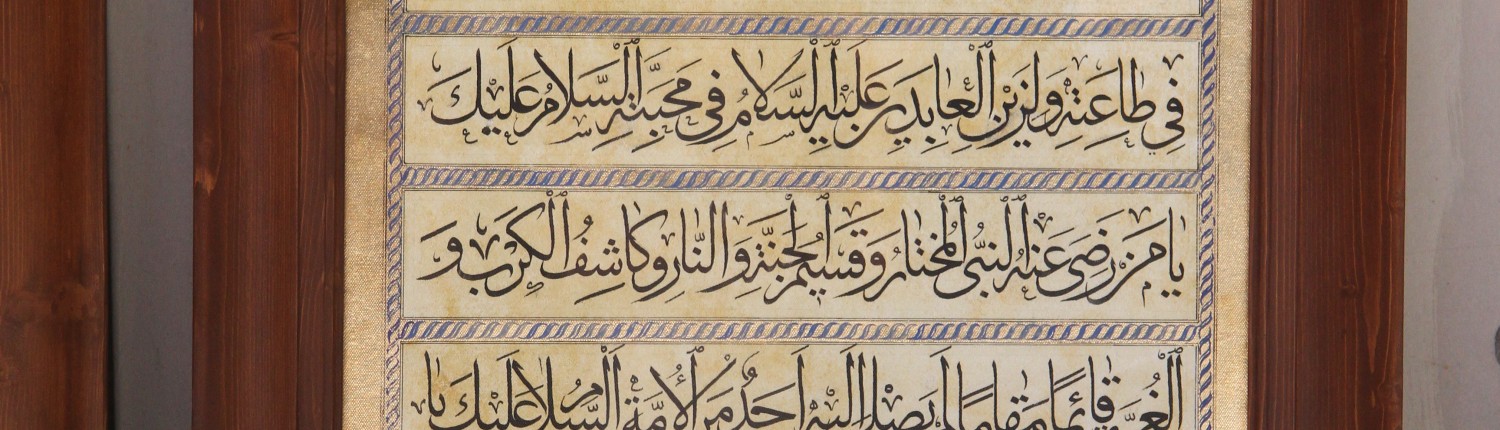 في طاعته ولزين العابدين عليه السلام في محبته السلام عليك
يا من رضي عنه النبي المختار وقسيم الجنة والنار وكاشف الكرب و
الغمة قائما مقاما لم يصل اليه احد من الأمة السلام عليك يا